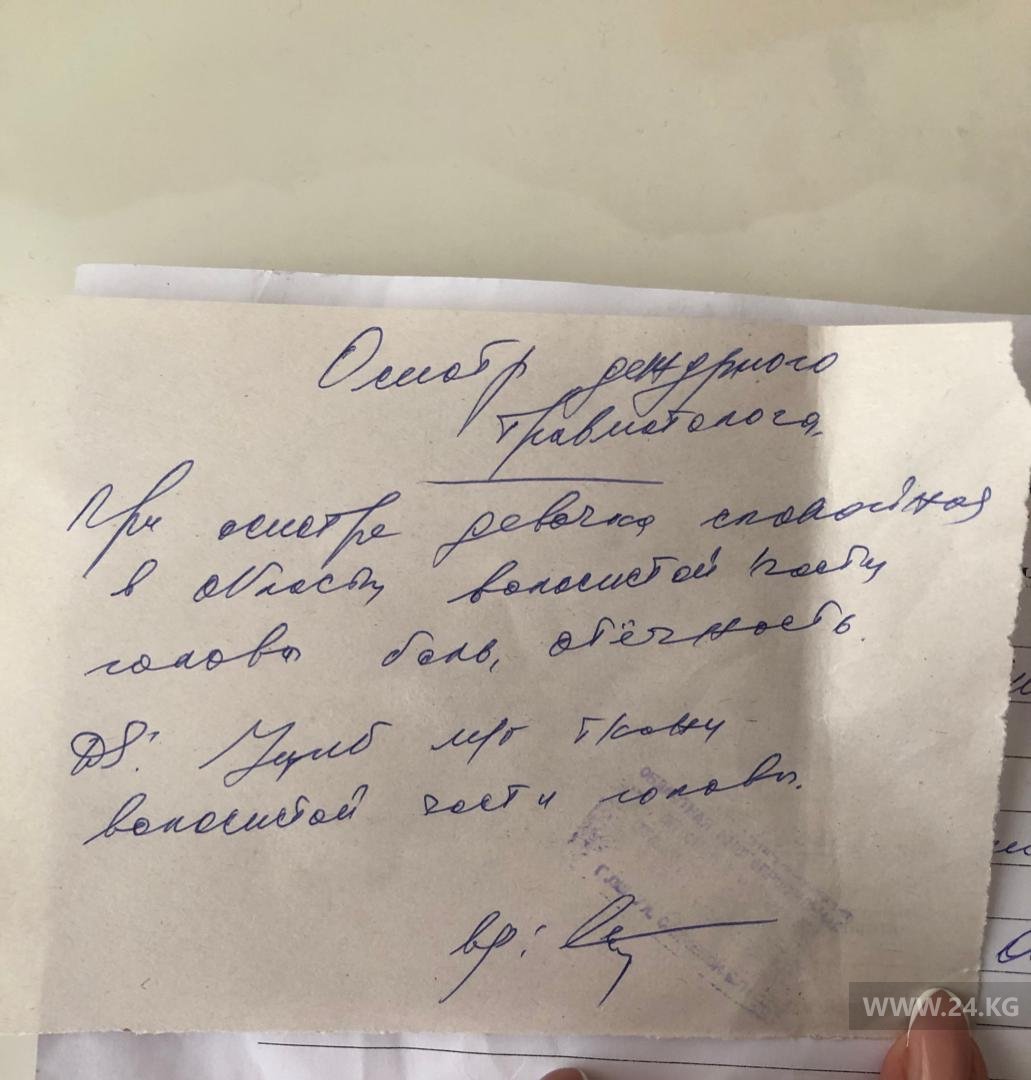 Осмотр дежурного
травматолога.
При осмотре девочка спокойная
в области волосистой части
головы боль, отёчность.
DS: Ушиб м/т ткани
волосистой части головы.
вр:
WWW.24.KG